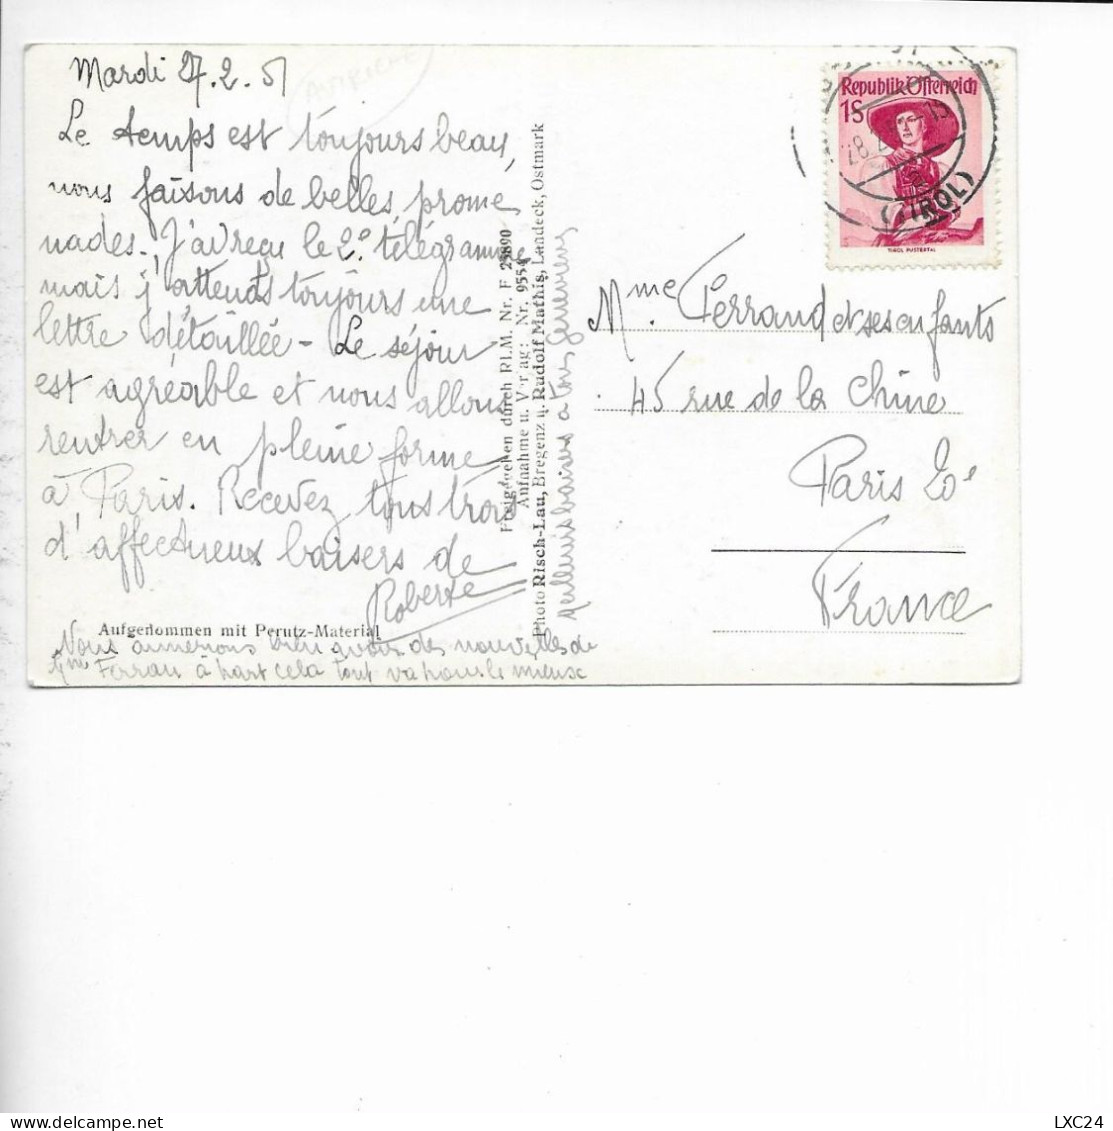 Mardi 27.2.51
AUTRICHE
Le temps est toujours beau,
nous faisons de belles prome
nades. J'ai reçu le 2e télégramme
mais j'attends toujours une
lettre détaillée - Le séjour
est agréable et nous allons
rentrer en pleine forme
à Paris. Recevez tous trois
d'affectueux baisers de
Roberte
Aufgenommen mit Perutz-Material
Nous aimerions bien avoir des nouvelles de
Mme Ferran à part cela tout va pour le mieux
Freigegeben durch RLM. Nr. F 23890
Aufnahme u. Verlag: Nr. 9554
Photo Risch-Lau, Bregenz u. Rudolf Mathis, Landeck, Ostmark
Meilleurs baisers à tous Geneviève
Republik Österreich
1S
TIROL PUSTERTAL
28.2
(TIROL)
Mme Ferrand et ses enfants
45 rue de la Chine
Paris 20e
France
LXC24